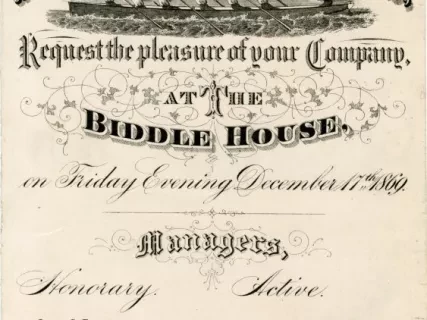 Request the pleasure of your Company,
AT THE
BIDDLE HOUSE,
on Friday Evening December 17th 1869.
Managers,
Honorary. Active.